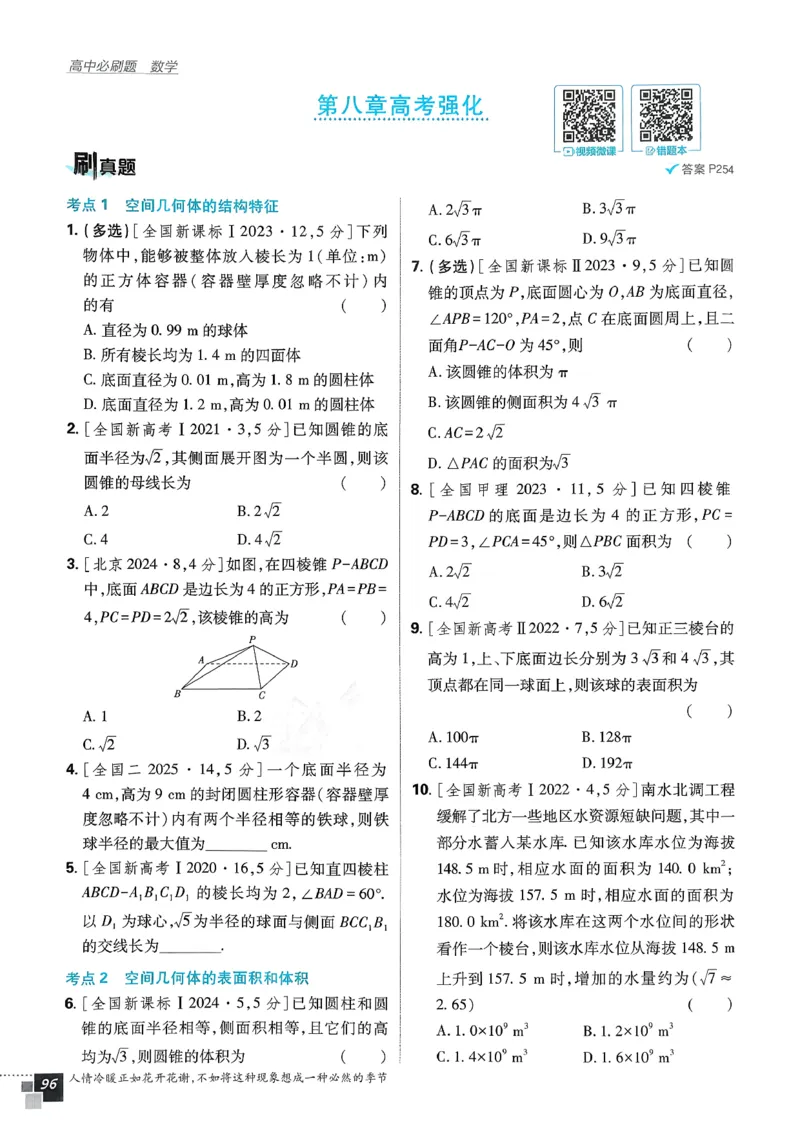 高中必刷题 数学
第八章高考强化
视频微课
错题本
刷真题
答案 P254
考点 1 空间几何体的结构特征
1. (多选)[全国新课标Ⅰ2023·12,5分]下列
物体中,能够被整体放入棱长为1(单位:m)
的正方体容器(容器壁厚度忽略不计)内
的有 ( )
A. 直径为 0.99 m 的球体
B. 所有棱长均为 1.4 m 的四面体
C. 底面直径为 0.01 m,高为 1.8 m 的圆柱体
D. 底面直径为 1.2 m,高为 0.01 m 的圆柱体
2. [全国新高考Ⅰ2021·3,5分]已知圆锥的底
面半径为√2,其侧面展开图为一个半圆,则该
圆锥的母线长为 ( )
A. 2 B. 2√2
C. 4 D. 4√2
3. [北京2024·8,4分]如图,在四棱锥 P-ABCD
中,底面 ABCD 是边长为 4 的正方形,PA=PB=
4,PC=PD=2√2,该棱锥的高为 ( )
P
A
D
B
C
A. 1 B. 2
C. √2 D. √3
4. [全国二 2025·14,5分]一个底面半径为
4 cm,高为 9 cm 的封闭圆柱形容器(容器壁厚
度忽略不计)内有两个半径相等的铁球,则铁
球半径的最大值为________cm.
5. [全国新高考Ⅰ2020·16,5分]已知直四棱柱
ABCD-A₁B₁C₁D₁ 的棱长均为 2,∠BAD=60°.
以 D₁ 为球心,√5为半径的球面与侧面 BCC₁B₁
的交线长为________.
考点 2 空间几何体的表面积和体积
6. [全国新课标Ⅰ2024·5,5分]已知圆柱和圆
锥的底面半径相等,侧面积相等,且它们的高
均为√3,则圆锥的体积为 ( )
A. 2√3π B. 3√3π
C. 6√3π D. 9√3π
7. (多选)[全国新课标Ⅱ2023·9,5分]已知圆
锥的顶点为 P,底面圆心为 O,AB 为底面直径,
∠APB=120°,PA=2,点 C 在底面圆周上,且二
面角P-AC-O 为 45°,则 ( )
A. 该圆锥的体积为 π
B. 该圆锥的侧面积为 4√3π
C. AC=2√2
D. △PAC 的面积为√3
8. [全国甲理 2023·11,5分]已知四棱锥
P-ABCD 的底面是边长为 4 的正方形,PC=
PD=3,∠PCA=45°,则△PBC 面积为 ( )
A. 2√2 B. 3√2
C. 4√2 D. 6√2
9. [全国新高考Ⅱ2022·7,5分]已知正三棱台的
高为 1,上、下底面边长分别为 3√3和 4√3,其
顶点都在同一球面上,则该球的表面积为
( )
A. 100π B. 128π
C. 144π D. 192π
10. [全国新高考Ⅰ2022·4,5分]南水北调工程
缓解了北方一些地区水资源短缺问题,其中一
部分水蓄入某水库. 已知该水库水位为海拔
148.5 m 时,相应水面的面积为 140.0 km²;
水位为海拔 157.5 m 时,相应水面的面积为
180.0 km². 将该水库在这两个水位间的形状
看作一个棱台,则该水库水位从海拔 148.5 m
上升到 157.5 m 时,增加的水量约为(√7≈
2.65) ( )
A. 1.0×10⁹ m³ B. 1.2×10⁹ m³
C. 1.4×10⁹ m³ D. 1.6×10⁹ m³
96 人情冷暖正如花开花谢,不如将这种现象想成一种必然的季节